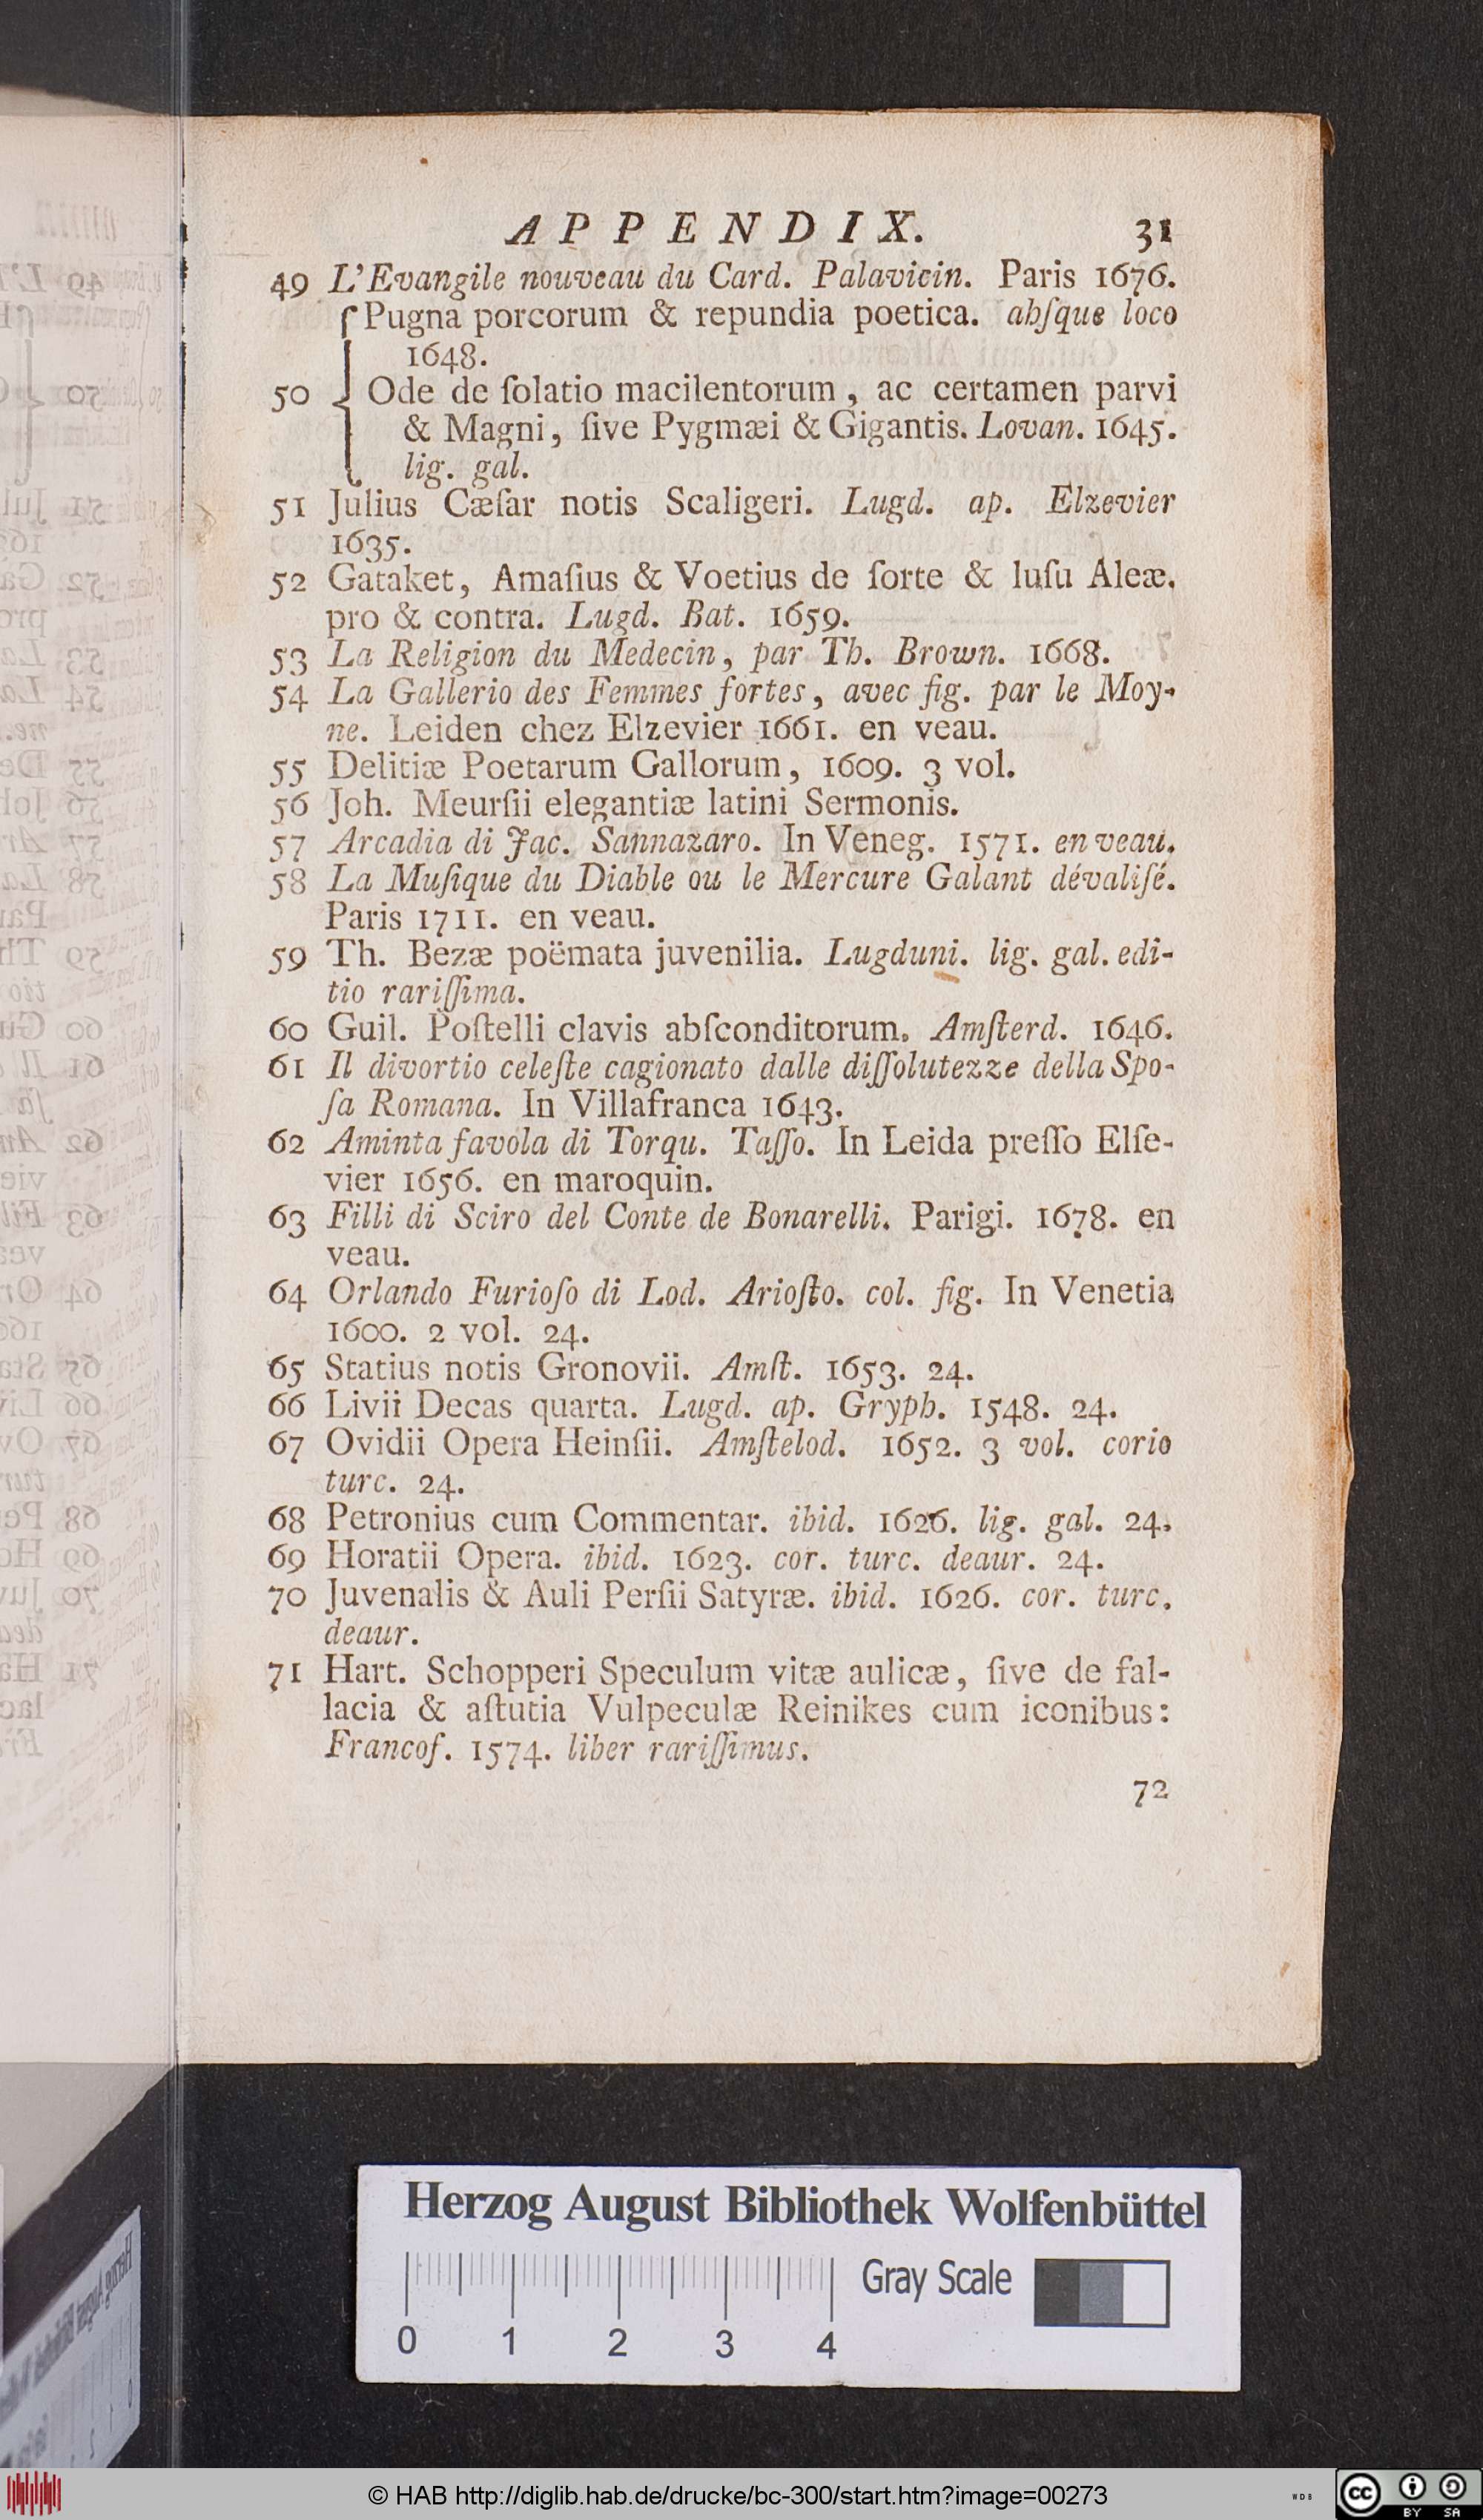 APPENDIX. 31
49 L'Evangile nouveau du Card. Palavicin. Paris 1676.
Pugna porcorum & repundia poetica. abſque loco
1648.
50 Ode de ſolatio macilentorum, ac certamen parvi
& Magni, ſive Pygmæi & Gigantis. Lovan. 1645.
lig. gal.
51 Julius Cæſar notis Scaligeri. Lugd. ap. Elzevier
1635.
52 Gataket, Amaſius & Voetius de ſorte & luſu Aleæ.
pro & contra. Lugd. Bat. 1659.
53 La Religion du Medecin, par Th. Brown. 1668.
54 La Gallerio des Femmes fortes, avec fig. par le Moy-
ne. Leiden chez Elzevier 1661. en veau.
55 Delitiæ Poetarum Gallorum, 1609. 3 vol.
56 Joh. Meurſii elegantiæ latini Sermonis.
57 Arcadia di Jac. Sannazaro. In Veneg. 1571. en veau.
58 La Muſique du Diable ou le Mercure Galant dévaliſé.
Paris 1711. en veau.
59 Th. Bezæ poëmata juvenilia. Lugduni. lig. gal. edi-
tio rariſſima.
60 Guil. Poſtelli clavis abſconditorum. Amſterd. 1646.
61 Il divortio celeſte cagionato dalle diſſolutezze della Spo-
ſa Romana. In Villafranca 1643.
62 Aminta favola di Torqu. Taſſo. In Leida preſſo Elſe-
vier 1656. en maroquin.
63 Filli di Sciro del Conte de Bonarelli. Parigi. 1678. en
veau.
64 Orlando Furioſo di Lod. Arioſto. col. fig. In Venetia
1600. 2 vol. 24.
65 Statius notis Gronovii. Amſt. 1653. 24.
66 Livii Decas quarta. Lugd. ap. Gryph. 1548. 24.
67 Ovidii Opera Heinſii. Amſtelod. 1652. 3 vol. corio
turc. 24.
68 Petronius cum Commentar. ibid. 1626. lig. gal. 24.
69 Horatii Opera. ibid. 1623. cor. turc. deaur. 24.
70 Juvenalis & Auli Perſii Satyræ. ibid. 1626. cor. turc.
deaur.
71 Hart. Schopperi Speculum vitæ aulicæ, ſive de fal-
lacia & aſtutia Vulpeculæ Reinikes cum iconibus:
Francof. 1574. liber rariſſimus.
72
Herzog August Bibliothek Wolfenbüttel
Gray Scale
0 1 2 3 4
© HAB http://diglib.hab.de/drucke/bc-300/start.htm?image=00273
WDB
cc BY SA